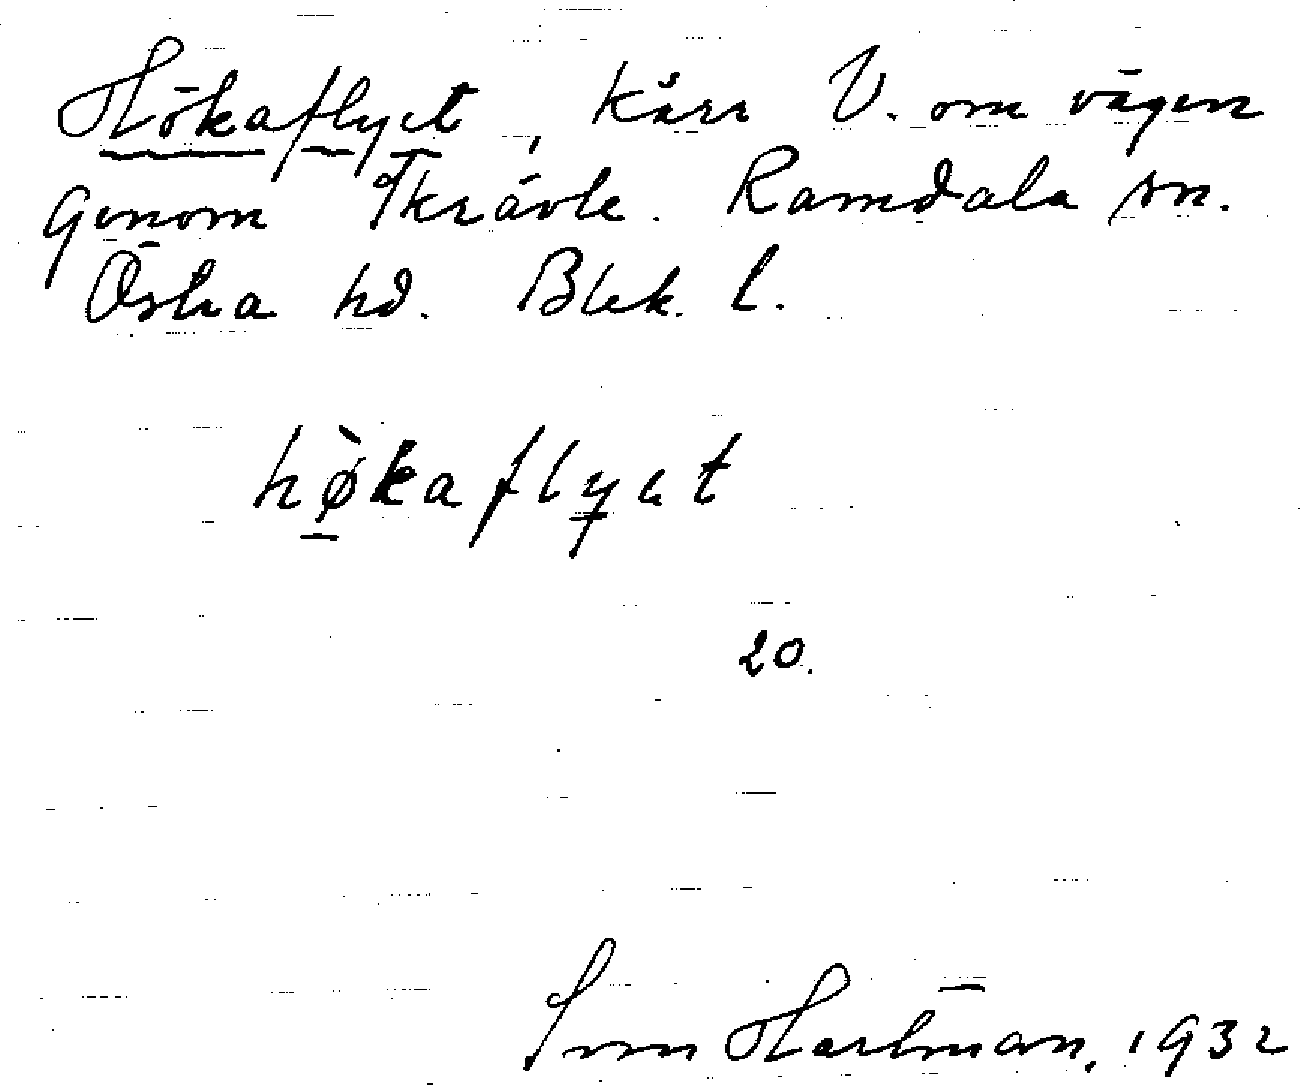 Hökaflyet, Kärr V. om vägen
genom Skrävle. Ramdala sn.
Östra hd. Blek. l.
høkaflyet
20.
Sven Hartman, 1932